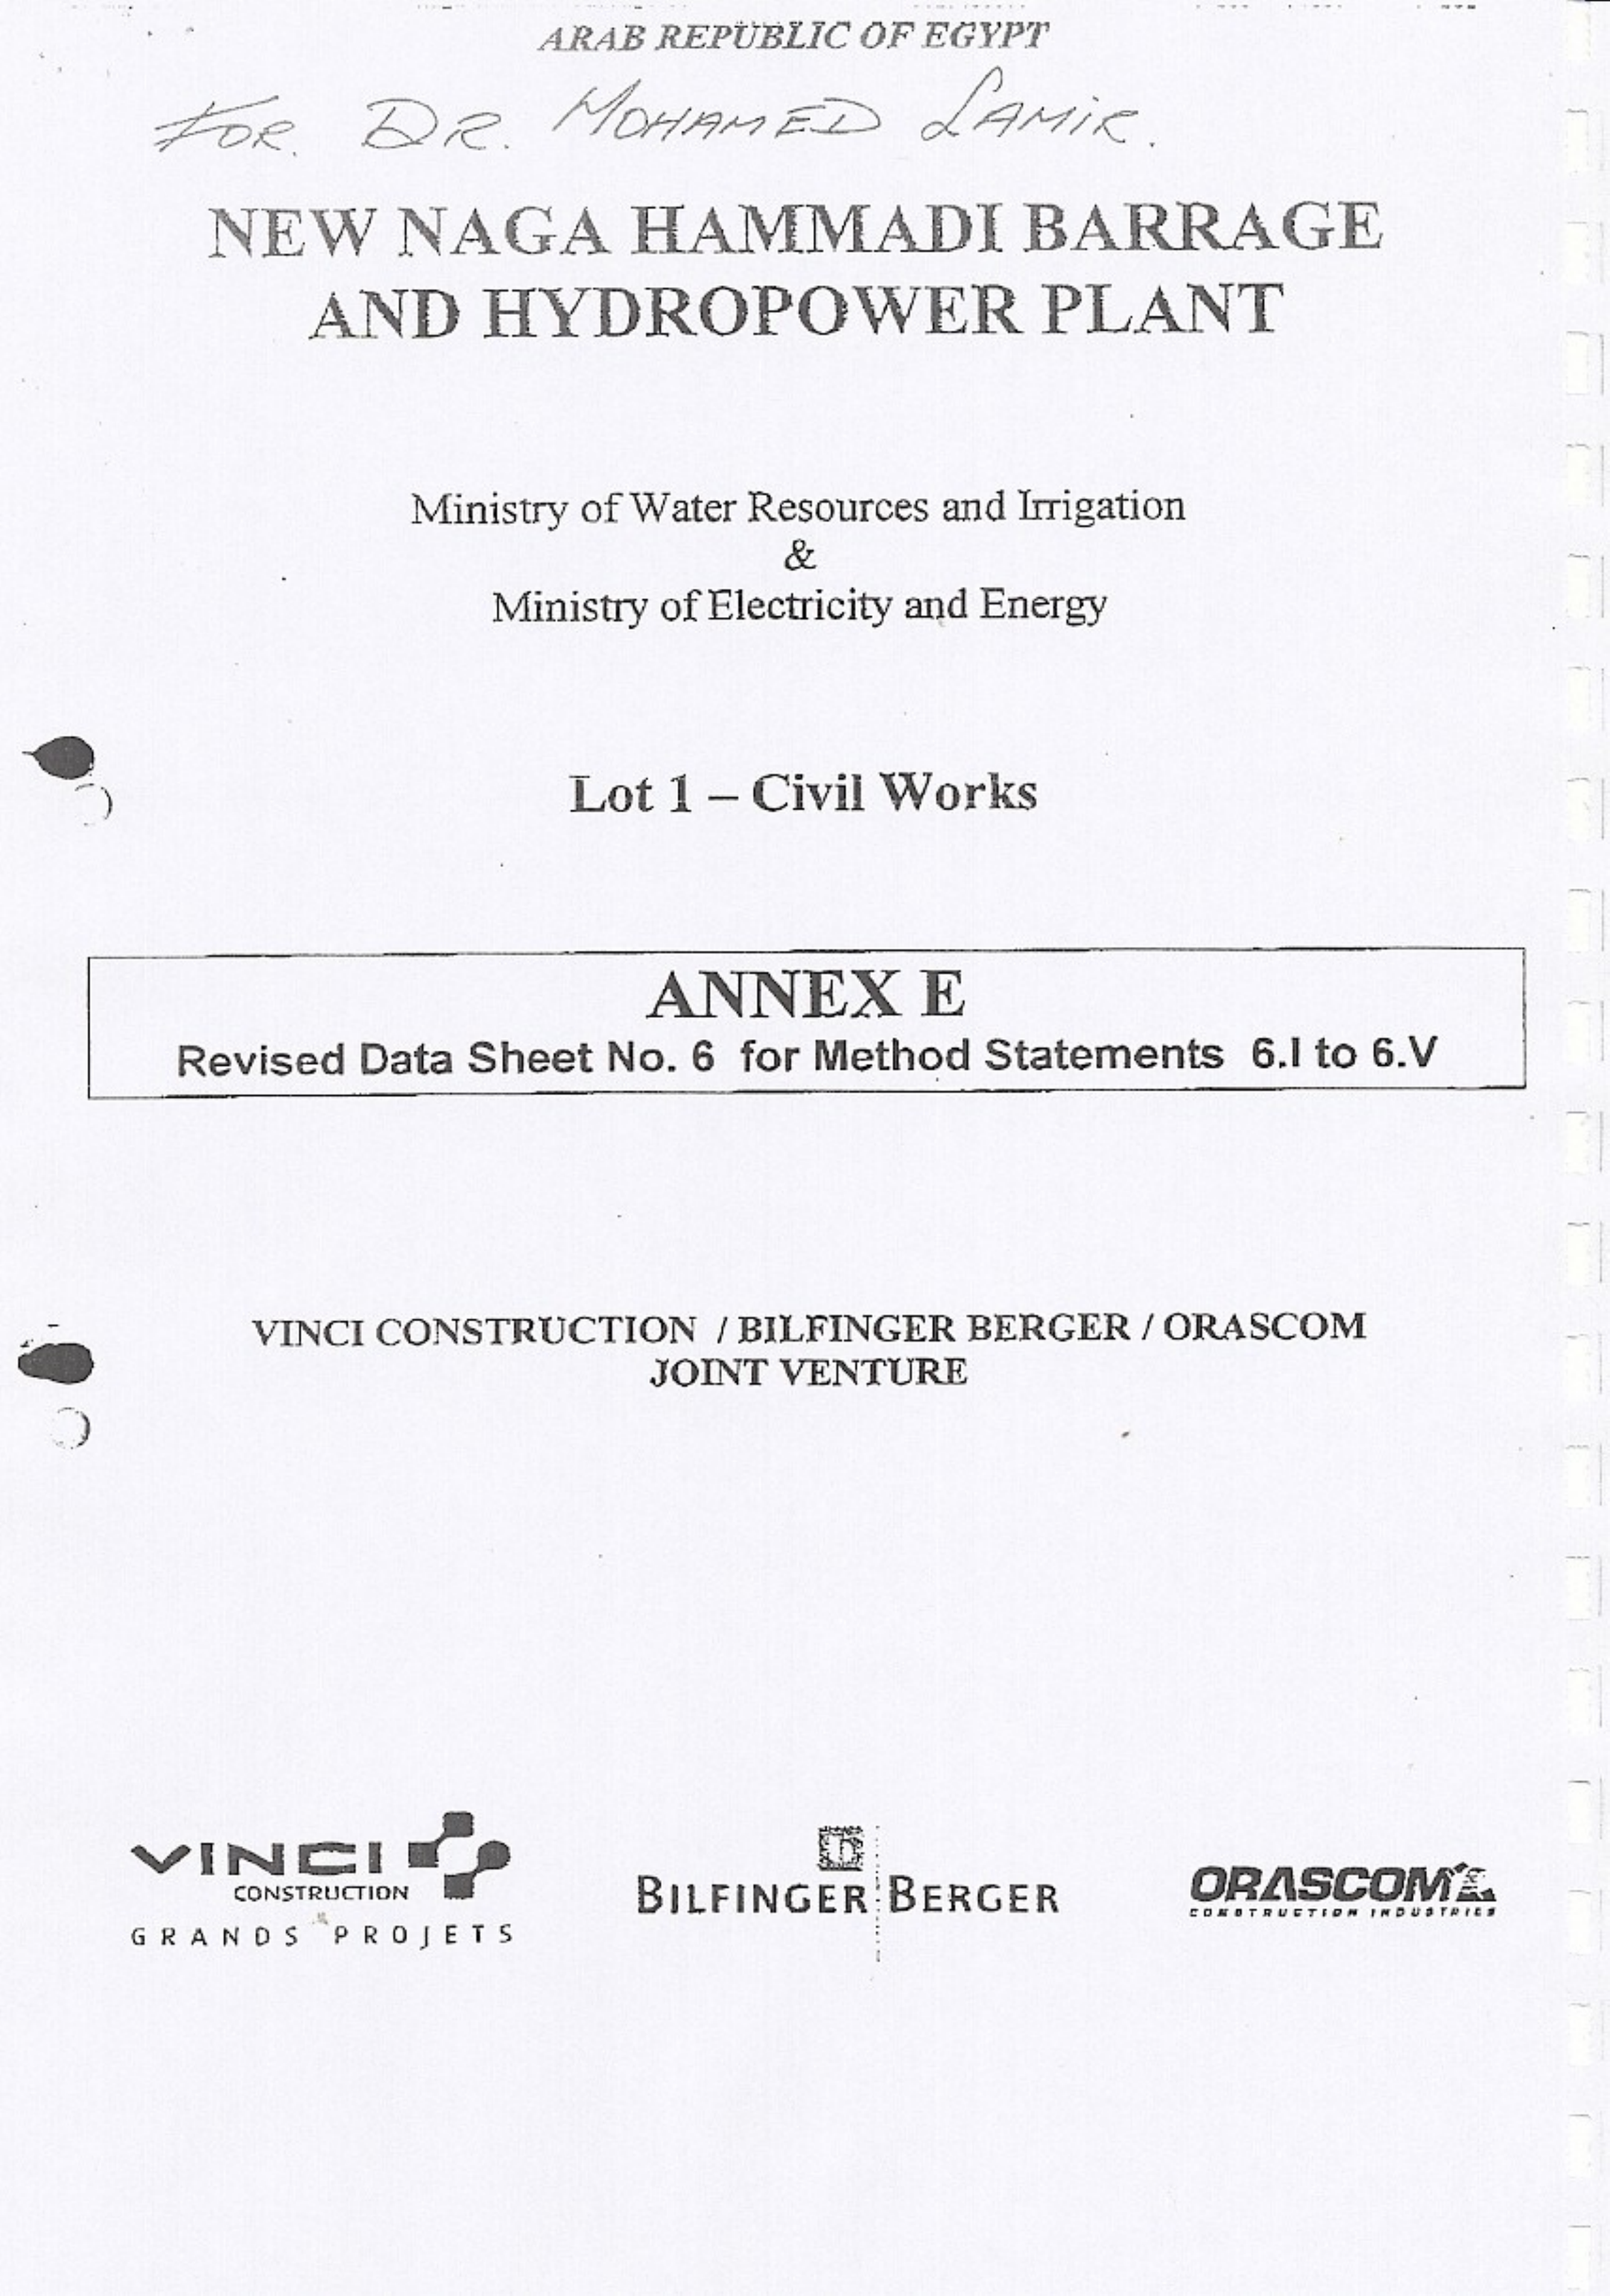 ARAB REPUBLIC OF EGYPT
FOR. DR. MOHAMED SAMIR.
NEW NAGA HAMMADI BARRAGE
AND HYDROPOWER PLANT
Ministry of Water Resources and Irrigation
&
Ministry of Electricity and Energy
Lot 1 – Civil Works
ANNEX E
Revised Data Sheet No. 6 for Method Statements 6.I to 6.V
VINCI CONSTRUCTION / BILFINGER BERGER / ORASCOM
JOINT VENTURE
VINCI
CONSTRUCTION
GRANDS PROJETS
BILFINGER BERGER
ORASCOM
CONSTRUCTION INDUSTRIES